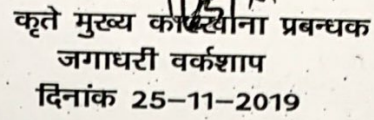 कृते मुख्य कारखाना प्रबन्धक
जगाधरी वर्कशाप
दिनांक 25–11–2019